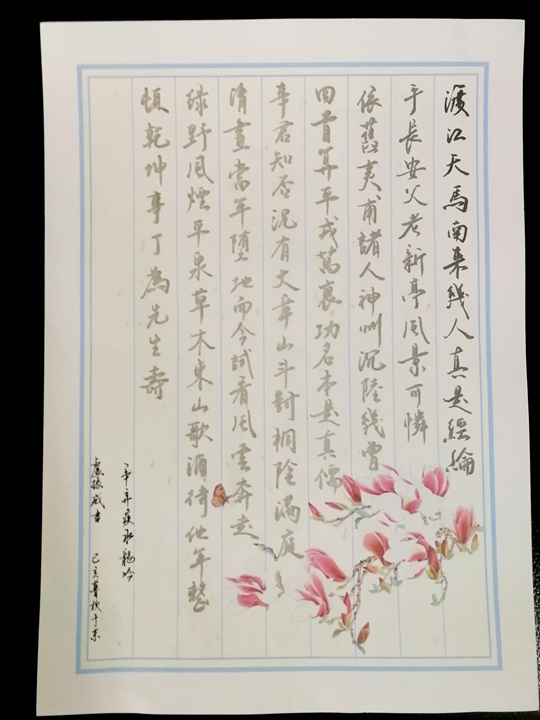 渡江天馬南来幾人真是經綸
手長安父老新亭風景可憐
依舊夷甫諸人神州沉陸幾曾
回首算平戎萬裏功名本是真儒
事君知否況有文章山斗對桐陰滿庭
清晝當年墮地而今試看風雲奔走
綠野風煙平泉草木東山歌酒待他年整
頓乾坤事了為先生壽
辛弃疾水龍吟
振威書 己亥暮秋于京